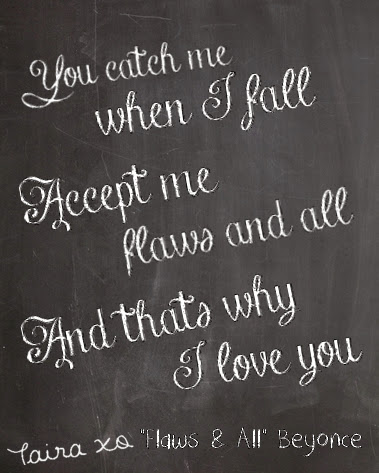 You catch me
when I fall
Accept me
flaws and all
And thats why
I love you
Taira xo "Flaws & All" Beyonce